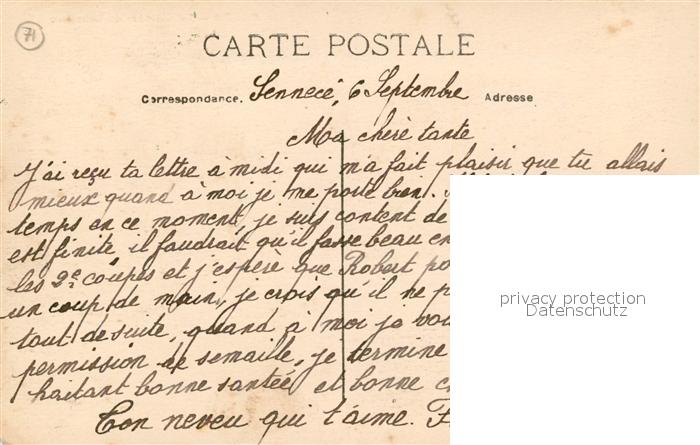 71
CARTE POSTALE
Correspondance. Sennecé, 6 Septembre Adresse
Ma chère tante
J'ai reçu ta lettre à midi qui m'a fait plaisir que tu allais
mieux quand à moi je me porte bien.
temps en ce moment, je suis content de
est finite, il faudrait qu'il fasse beau
les 2e coupes et j'espère que Robert
un coup de main, je crois qu'il ne
tout de suite, quand à moi je
permission de semaille, je termine
haitant bonne santée et bonne
Ton neveu qui t'aime. F
privacy protection
Datenschutz